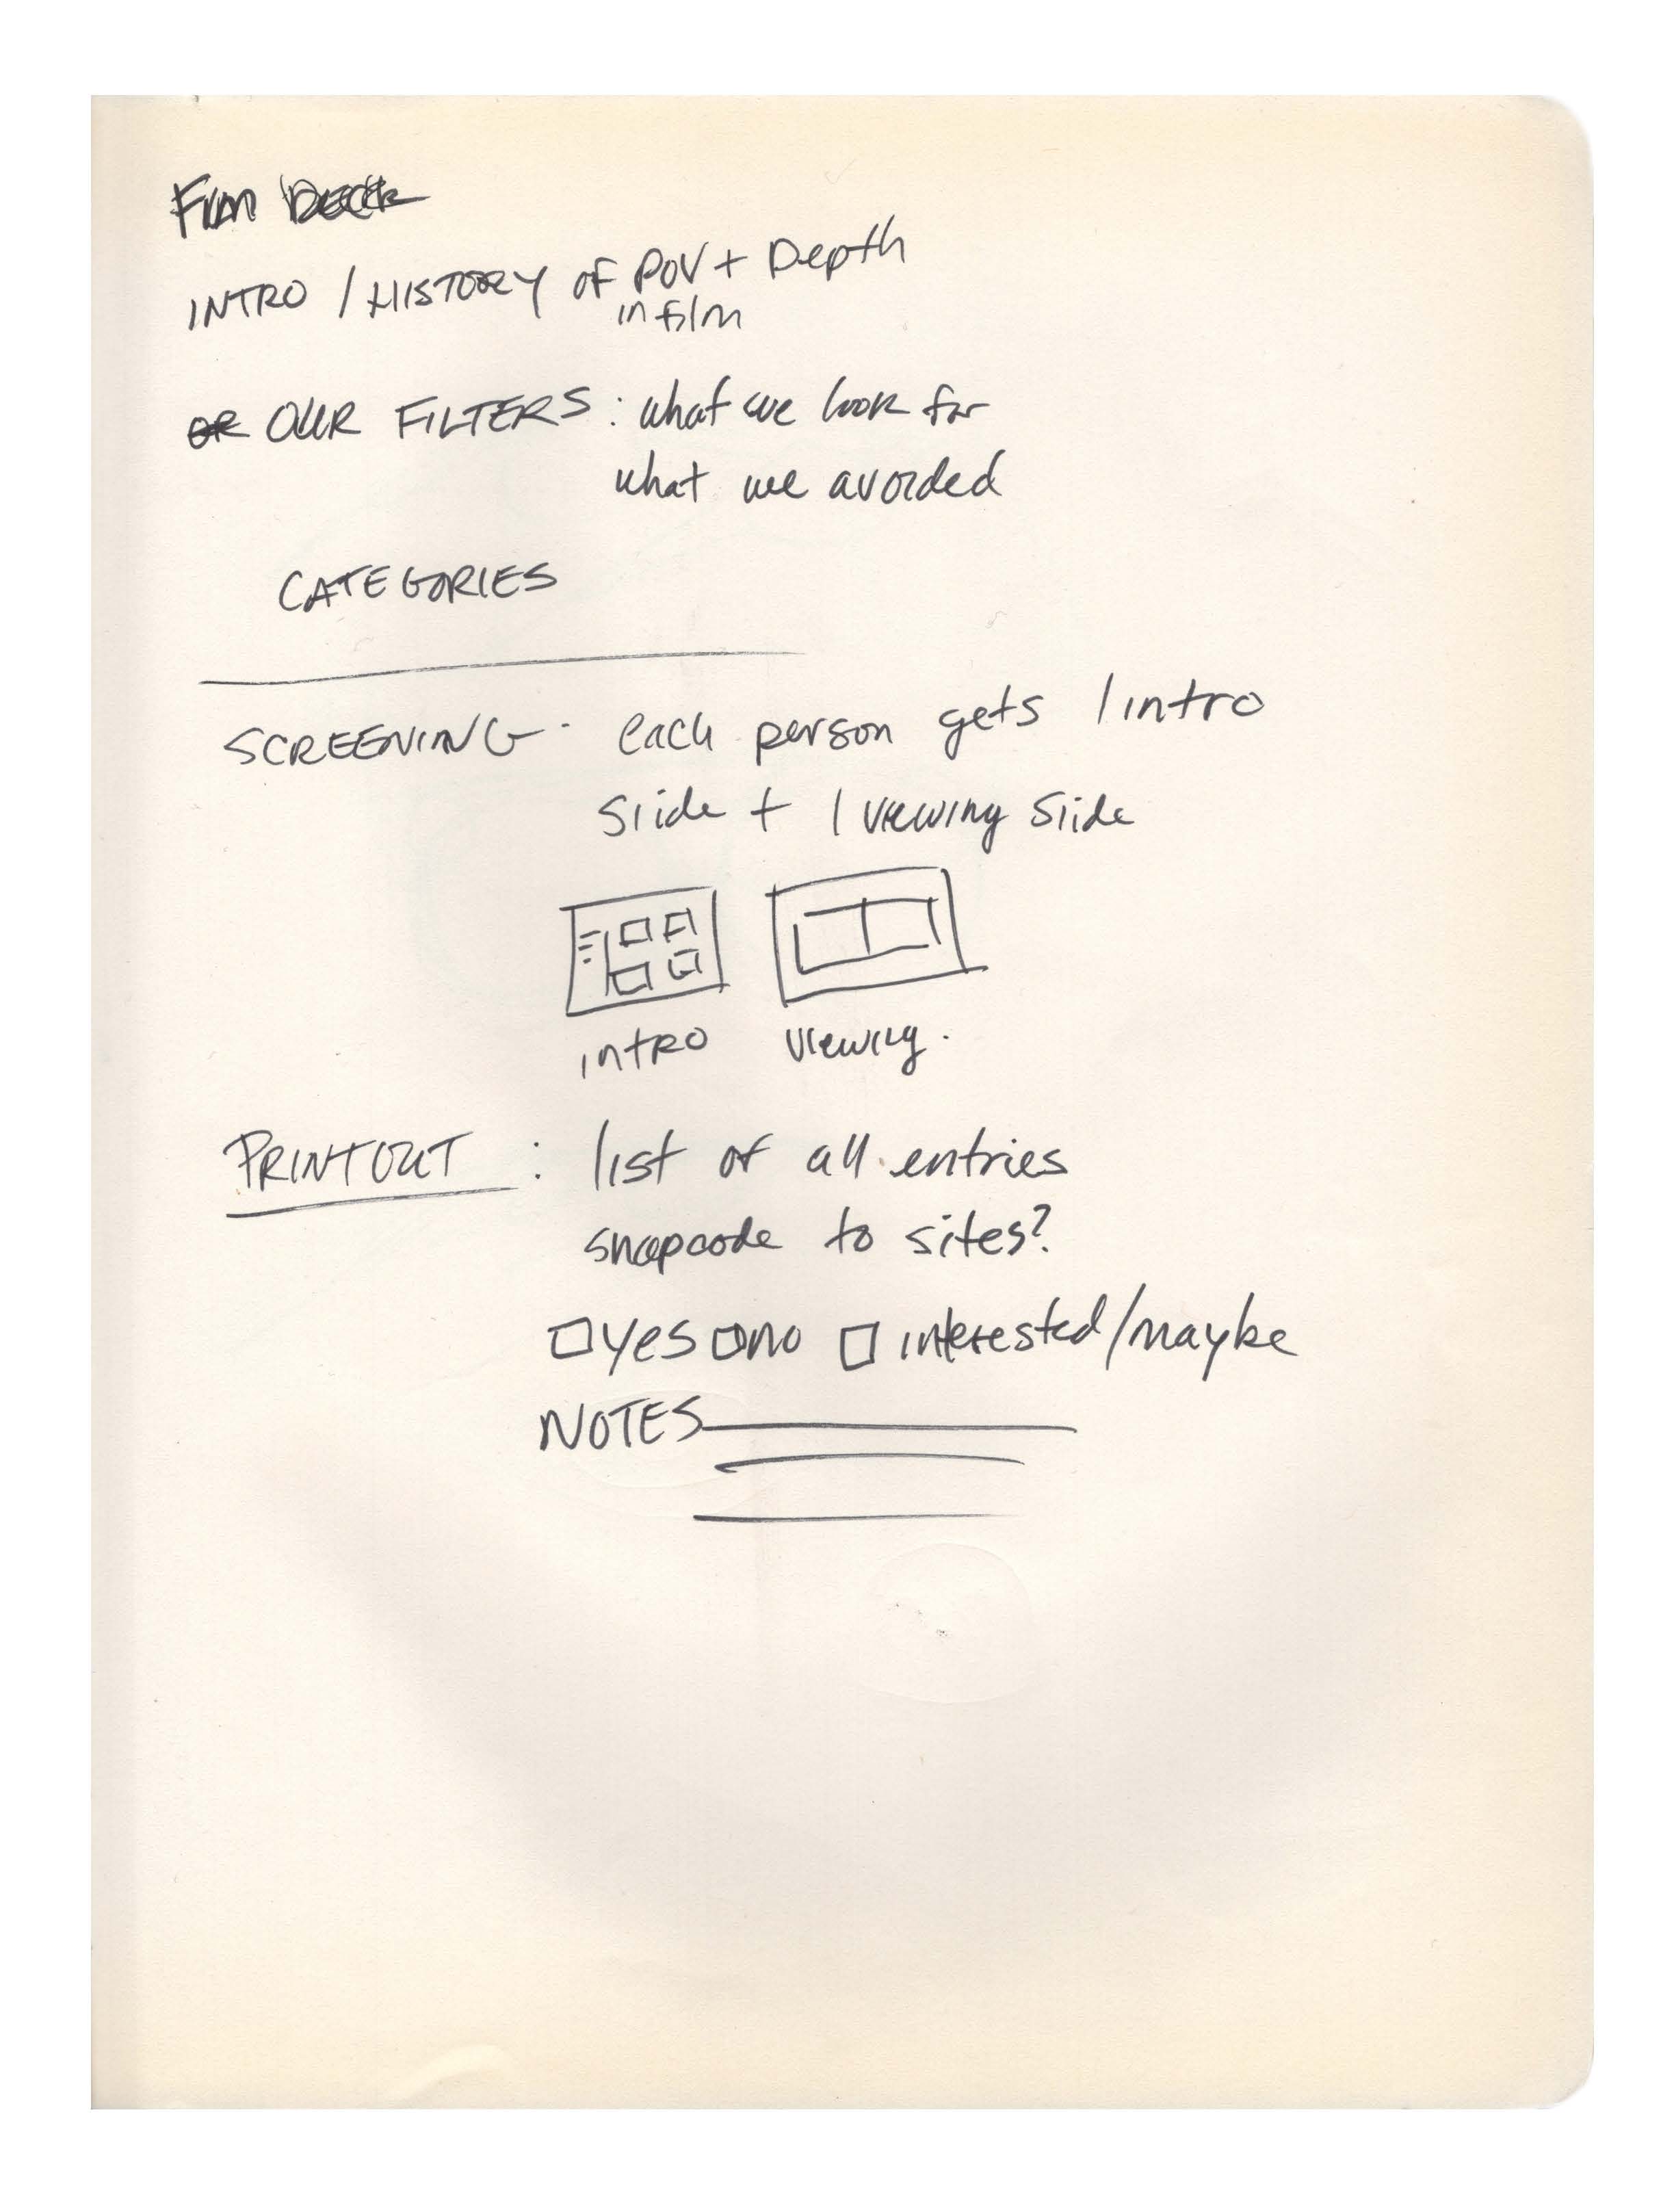 Film Deck
INTRO / HISTORY OF POV + Depth
in film
OR OUR FILTERS : what we look for
what we avoided
CATEGORIES
SCREENING - each person gets 1 intro
slide + 1 viewing slide
intro viewing.
PRINTOUT : list of all entries
snapcode to sites?
yes no interested/maybe
NOTES